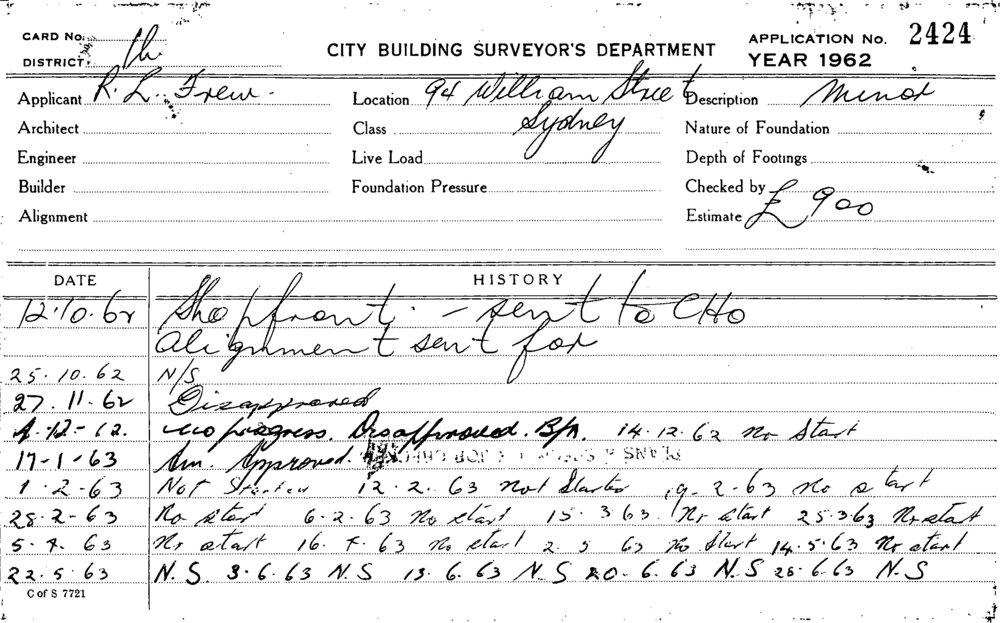 CARD No.
DISTRICT:
CITY BUILDING SURVEYOR'S DEPARTMENT
APPLICATION No. 2424
YEAR 1962
Applicant R. L. Frew.
Location 94 William Street
Sydney
Description Minor
Architect
Class
Nature of Foundation
Engineer
Live Load
Depth of Footings
Builder
Foundation Pressure
Checked by
Alignment
Estimate £900
DATE HISTORY
12.10.62 Shopfront. - sent to CHO
alignment sent for
25.10.62 N/S
27.11.62 Disapproved
4-12-62. No progress. Disapproved. 14.12.62 No Start
17-1-63 Am. Approved.
1-2-63 Not Started 12.2.63 Not Started 19-2-63 No start
28-2-63 No start 6-2.63 No start 15.3.63. No start 25.3.63 No start
5.4.63 No start 16.4.63 No start 2.5 63 No Start 14.5.63 No start
22.5.63 N.S. 3.6.63 N.S 13.6.63 N.S 20.6.63 N.S 28.6.63 N.S
C of S 7721